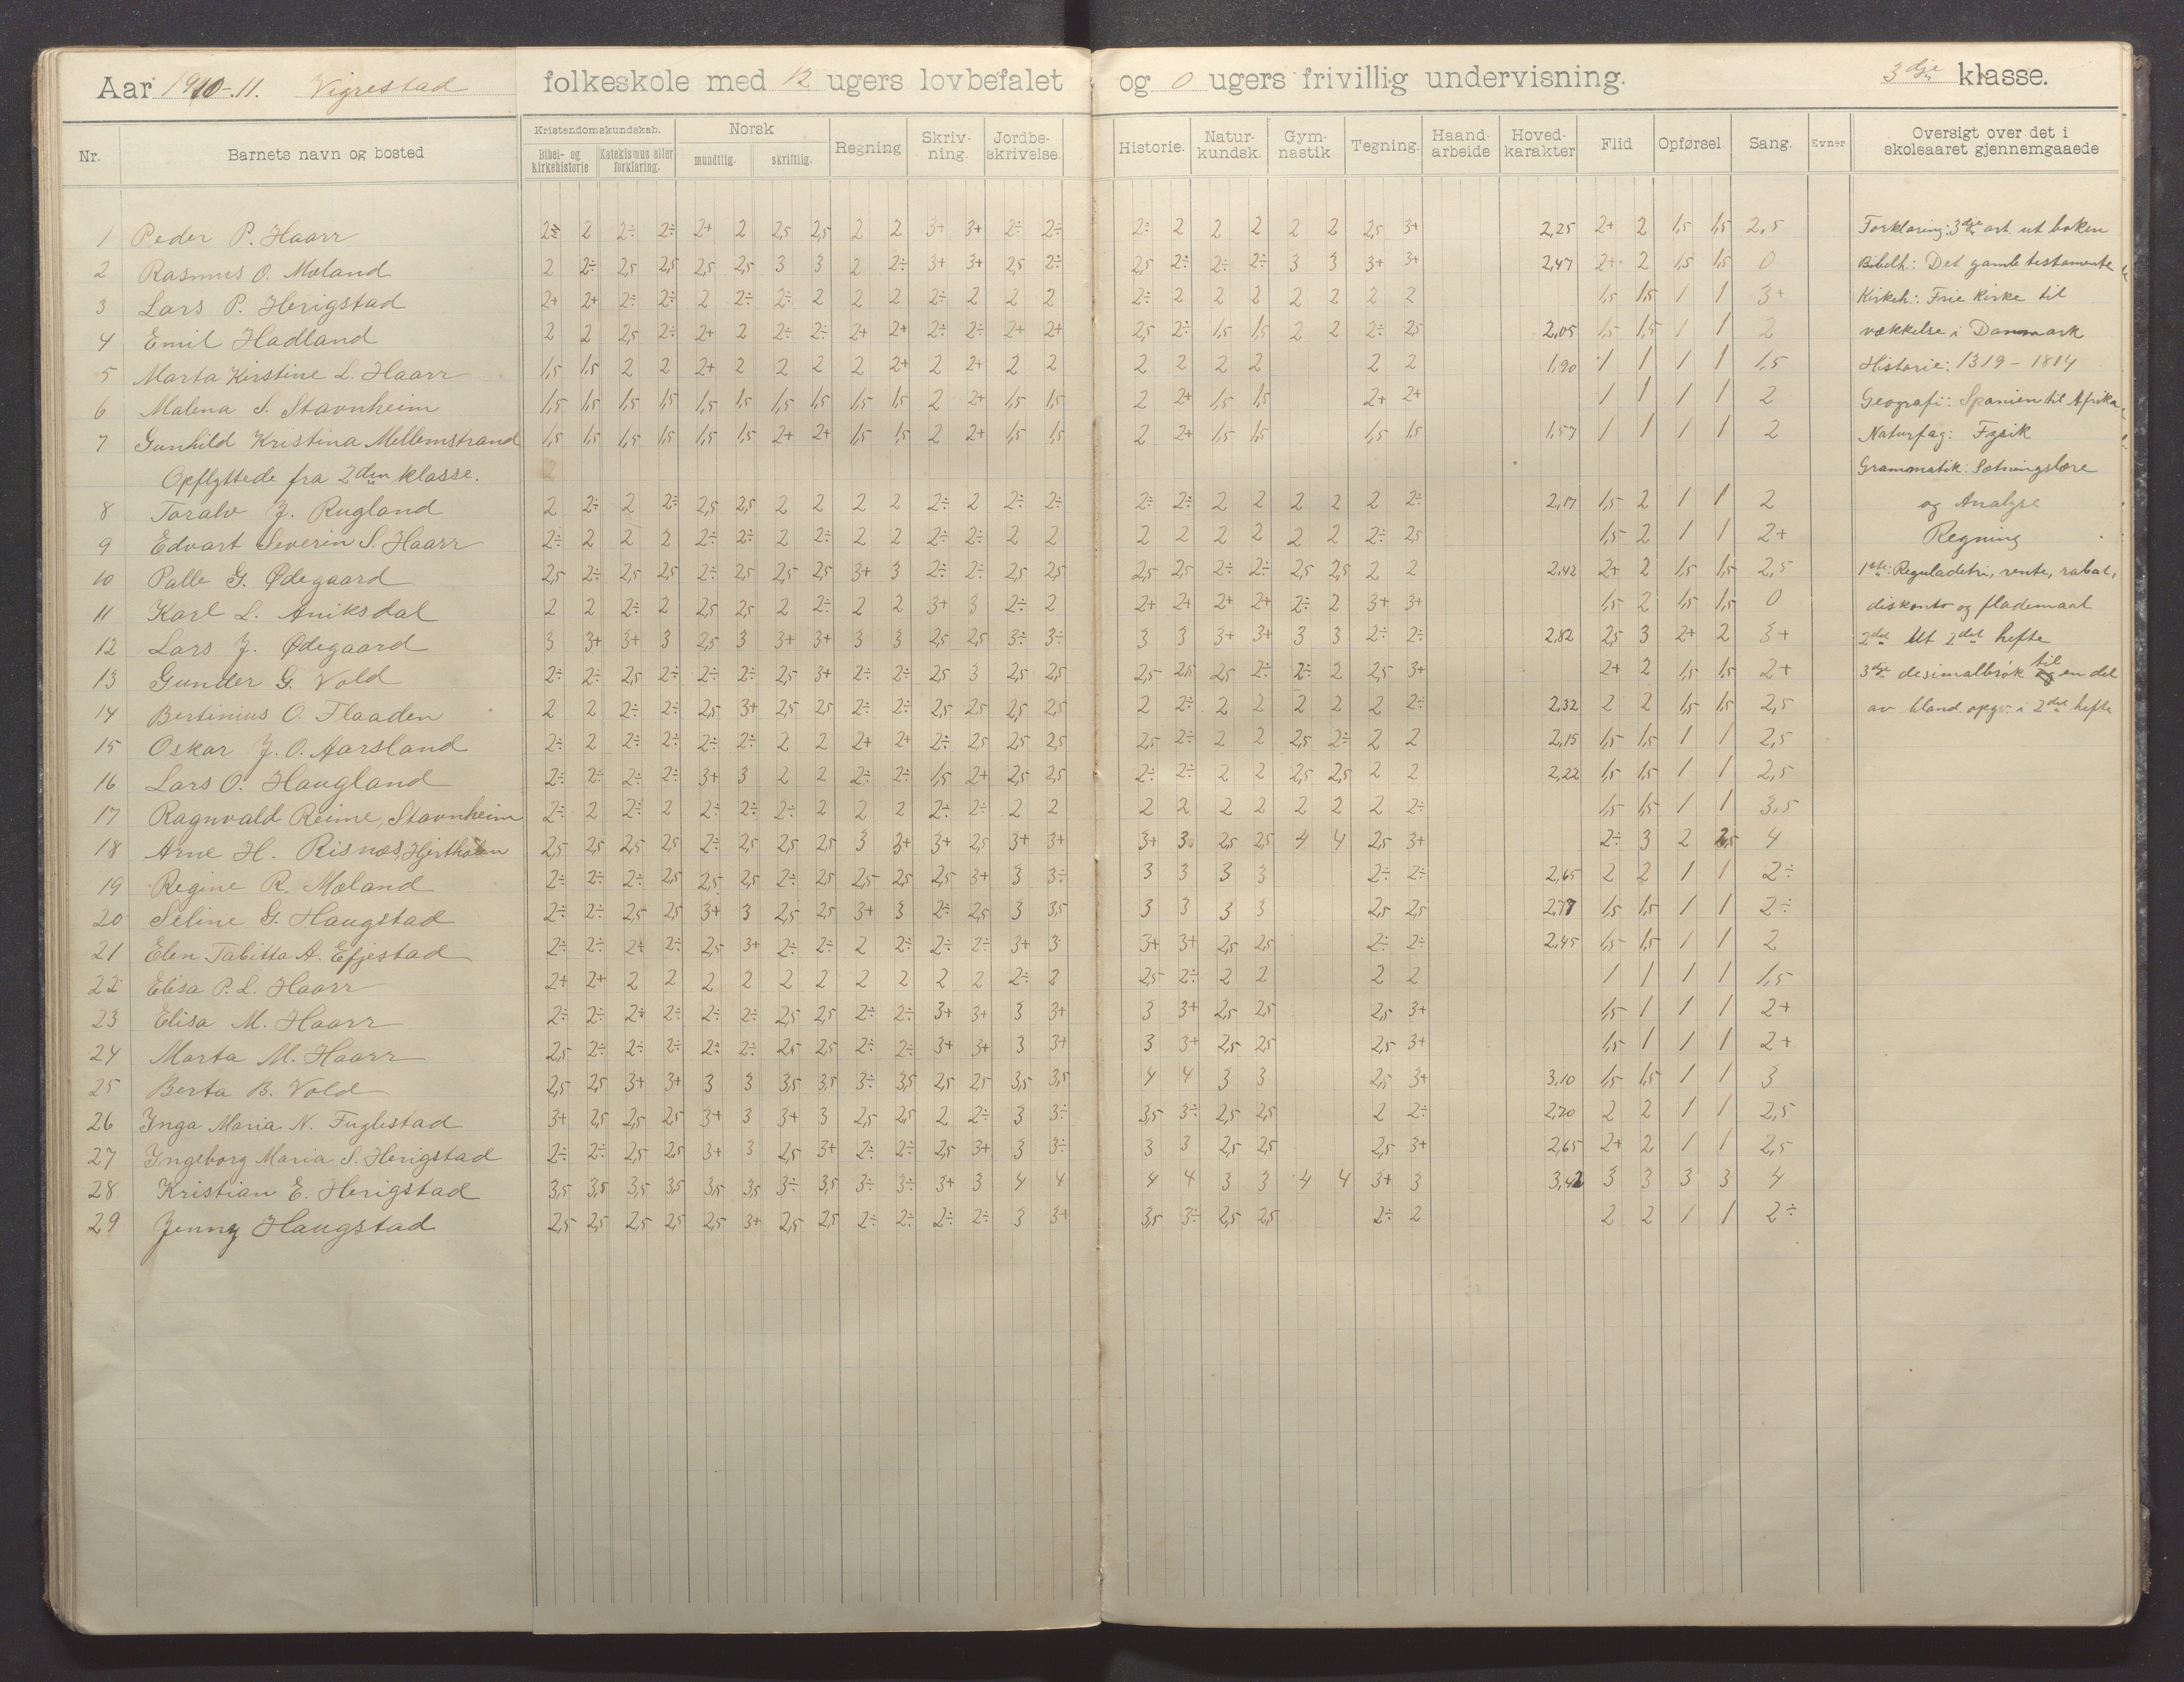 Aar 1910-11. Vigrestad folkeskole med 12 ugers lovbefalet og 0 ugers frivillig undervisning. 3dje klasse.
Nr. Barnets navn og bosted Kristendomskundskab. Bibel- og kirkehistorie Katekismus eller forklaring. Norsk mundtlig. skriftlig. Regning Skrivning. Jordbeskrivelse. Historie. Naturkundsk. Gymnastik Tegning. Haandarbeide Hovedkarakter Flid Opførsel. Sang. Evner Oversigt over det i skoleaaret gjennemgaaede
1 Peder P. Haarr 2÷ 2 2÷ 2÷ 2+ 2 2,5 2,5 2 2 3+ 3+ 2÷ 2÷ 2÷ 2 2 2 2 2 2,5 3+ 2,25 2+ 2 1,5 1,5 2,5 Forklaring: 3dje art. ut boken
2 Rasmus O. Mæland 2 2÷ 2,5 2,5 2,5 2,5 3 3 2 2÷ 3+ 3+ 2,5 2÷ 2,5 2÷ 2÷ 2÷ 3 3 3+ 3+ 2,47 2+ 2 1,5 1,5 0 Bibelh.: Det gamle testamente
3 Lars P. Herigstad 2+ 2+ 2÷ 2÷ 2 2÷ 2÷ 2 2 2 2÷ 2 2 2 2÷ 2 2 2 2 2 2 2 1,5 1,5 1 1 3+ Kirkeh.: Frie kirke til
4 Emil Hadland 2 2 2,5 2÷ 2+ 2 2÷ 2÷ 2+ 2+ 2÷ 2÷ 2+ 2+ 2,5 2÷ 1,5 1,5 2 2 2÷ 2,5 2,05 1,5 1,5 1 1 2 vækkelse i Danmark
5 Marta Kirstine L. Haarr 1,5 1,5 2 2 2+ 2 2 2 2 2+ 2 2+ 2 2 2 2 2 2 2 2 1,90 1 1 1 1 1,5 Historie: 1319 - 1814
6 Malena S. Stavnheim 1,5 1,5 1,5 1,5 1,5 1,5 1,5 1,5 1,5 1,5 2 2+ 1,5 1,5 2 2+ 1,5 1,5 2+ 2+ 1 1 1 1 2 Geografi: Spanien til Afrika
7 Gunhild Kristina Mellemstrand 1,5 1,5 1,5 1,5 1,5 1,5 2+ 2+ 1,5 1,5 2 2+ 1,5 1,5 2 2+ 1,5 1,5 1,5 1,5 1,57 1 1 1 1 2 Naturfag: Fysik
Opflyttede fra 2den klasse. Grammatik: Sætningslære
8 Toralv J. Rugland 2 2÷ 2 2÷ 2,5 2,5 2 2 2 2 2÷ 2 2÷ 2÷ 2÷ 2÷ 2 2 2 2 2 2÷ 2,17 1,5 2 1 1 2 og Analyse
9 Edvart Severin S. Haarr 2÷ 2 2 2 2÷ 2÷ 2 2÷ 2 2 2÷ 2÷ 2 2 2 2 2 2 2 2 2÷ 2,5 1,5 2 1 1 2+ Regning
10 Palle G. Ødegaard 2,5 2÷ 2,5 2,5 2÷ 2,5 2,5 2,5 3+ 3 2÷ 2÷ 2,5 2,5 2,5 2,5 2÷ 2÷ 2,5 2,5 2 2 2,42 2+ 2 1,5 1,5 2,5 1ste: Reguladetri, rente, rabat,
11 Karl L. Aniksdal 2 2 2÷ 2 2,5 2,5 2 2÷ 2 2 3+ 3 2÷ 2 2+ 2+ 2+ 2+ 2÷ 2 3+ 3+ 1,5 2 1,5 1,5 0 diskonto og flademaal
12 Lars J. Ødegaard 3 3+ 3+ 3 2,5 3 3+ 3+ 3 3 2,5 2,5 3÷ 3÷ 3 3 3+ 3+ 3 3 2÷ 2÷ 2,82 2,5 3 2+ 2 3+ 2det Ut 2det hefte
13 Gunder G. Vold 2÷ 2÷ 2,5 2÷ 2÷ 2÷ 2,5 3+ 2÷ 2÷ 2,5 3 2,5 2,5 2,5 2,5 2,5 2÷ 2÷ 2 2,5 3+ 2+ 2 1,5 1,5 2+ 3dje desimalbrøk til en del
14 Bertinius O. Flaaden 2 2 2÷ 2÷ 2,5 3+ 2,5 2,5 2÷ 2÷ 2,5 2,5 2,5 2,5 2 2÷ 2 2 2 2 2 2÷ 2,32 2 2 1,5 1,5 2,5 av bland. opgv. i 2det hefte
15 Oskar J. O. Aarsland 2÷ 2 2÷ 2÷ 2÷ 2÷ 2 2 2+ 2+ 2÷ 2,5 2,5 2,5 2,5 2÷ 2 2 2,5 2÷ 2 2 2,15 1,5 1,5 1 1 2,5
16 Lars O. Haugland 2÷ 2÷ 2÷ 2÷ 3+ 3 2 2 2÷ 2÷ 1,5 2+ 2,5 2,5 2÷ 2÷ 2 2 2,5 2,5 2 2 2,22 1,5 1,5 1 1 2,5
17 Ragnvald Reime, Stavnheim 2÷ 2 2÷ 2 2÷ 2÷ 2÷ 2 2 2 2÷ 2÷ 2 2 2 2 2 2 2 2 2 2÷ 1,5 1,5 1 1 3,5
18 Arne H. Risnæs, 2,5 2,5 2,5 2,5 2÷ 2,5 2,5 2,5 3 3+ 3+ 2,5 3+ 3+ 3+ 3 2,5 2,5 4 4 2,5 3+ 2÷ 3 2 2,5 4
19 Regine R. Mæland 2÷ 2÷ 2÷ 2,5 2,5 2,5 2÷ 2,5 2,5 2,5 2,5 3+ 3 3÷ 3 3 3 3 2÷ 2÷ 2,65 2 2 1 1 2÷
20 Seline G. Haugstad 2÷ 2÷ 2,5 2,5 3+ 3 2,5 2,5 3+ 3 2÷ 2,5 3 3,5 3 3 3 3 2,5 2,5 2,77 1,5 1,5 1 1 2÷
21 Elen Tabitta A. Efjestad 2÷ 2÷ 2÷ 2÷ 2,5 3+ 2÷ 2÷ 2 2÷ 2÷ 2÷ 3+ 3 3+ 3+ 2,5 2,5 2÷ 2÷ 2,45 1,5 1,5 1 1 2
22 Elisa P. L. Haarr 2+ 2+ 2 2 2 2 2 2 2 2 2 2 2÷ 2 2,5 2÷ 2 2 2 2 1 1 1 1 1,5
23 Elisa M. Haarr 2÷ 2÷ 2÷ 2÷ 2÷ 2÷ 2,5 2,5 2÷ 2÷ 3+ 3+ 3 3+ 3 3+ 2,5 2,5 2,5 3+ 1,5 1 1 1 2+
24 Marta M. Haarr 2,5 2÷ 2÷ 2÷ 2÷ 2÷ 2,5 2,5 2÷ 2÷ 3+ 3+ 3 3+ 3 3+ 2,5 2,5 2,5 3+ 1,5 1 1 1 2+
25 Berta B. Vold 2,5 2,5 3+ 3+ 3 3 3,5 3,5 3÷ 3,5 2,5 2,5 3,5 3,5 4 4 3 3 2,5 3+ 3,10 1,5 1,5 1 1 3
26 Inga Maria N. Fuglestad 3+ 2,5 2,5 2,5 3+ 3 3+ 3 2,5 2,5 2 2÷ 3 3÷ 3,5 3÷ 2,5 2,5 2 2÷ 2,70 2 2 1 1 2,5
27 Ingeborg Maria S. Herigstad 2÷ 2÷ 2,5 2,5 3+ 3 2,5 3+ 2÷ 2÷ 2,5 3+ 3 3÷ 3 3 2,5 2,5 2,5 3+ 2,65 2+ 2 1 1 2,5
28 Kristian E. Herigstad 3,5 3,5 3,5 3,5 3,5 3,5 3÷ 3,5 3÷ 3÷ 3+ 3 4 4 4 4 3 3 4 4 3+ 3 3,42 3 3 3 3 4
29 Jenny Haugstad 2,5 2,5 2,5 2,5 2,5 3+ 2,5 2,5 2÷ 2÷ 2÷ 2÷ 3 3+ 3,5 3÷ 2,5 2,5 2÷ 2 2 2 1 1 2÷